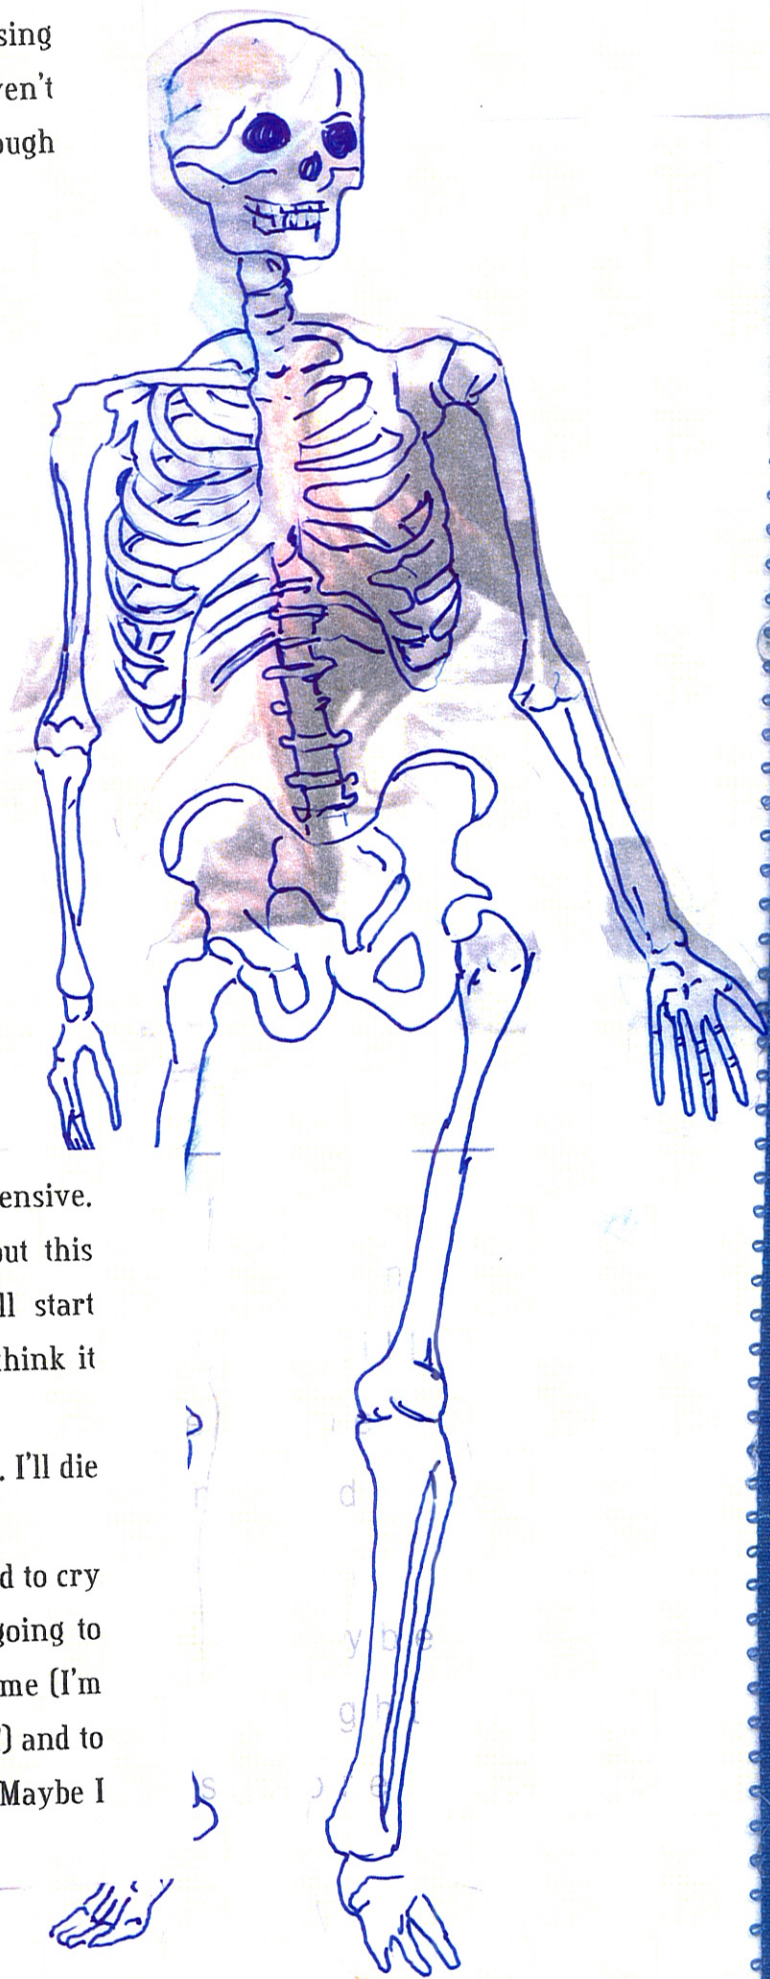 sing
en't
ough
ensive.
out this
ll start
think it
. I'll die
d to cry
going to
me (I'm
) and to
Maybe I
n
n d
y b e
g h
s
e